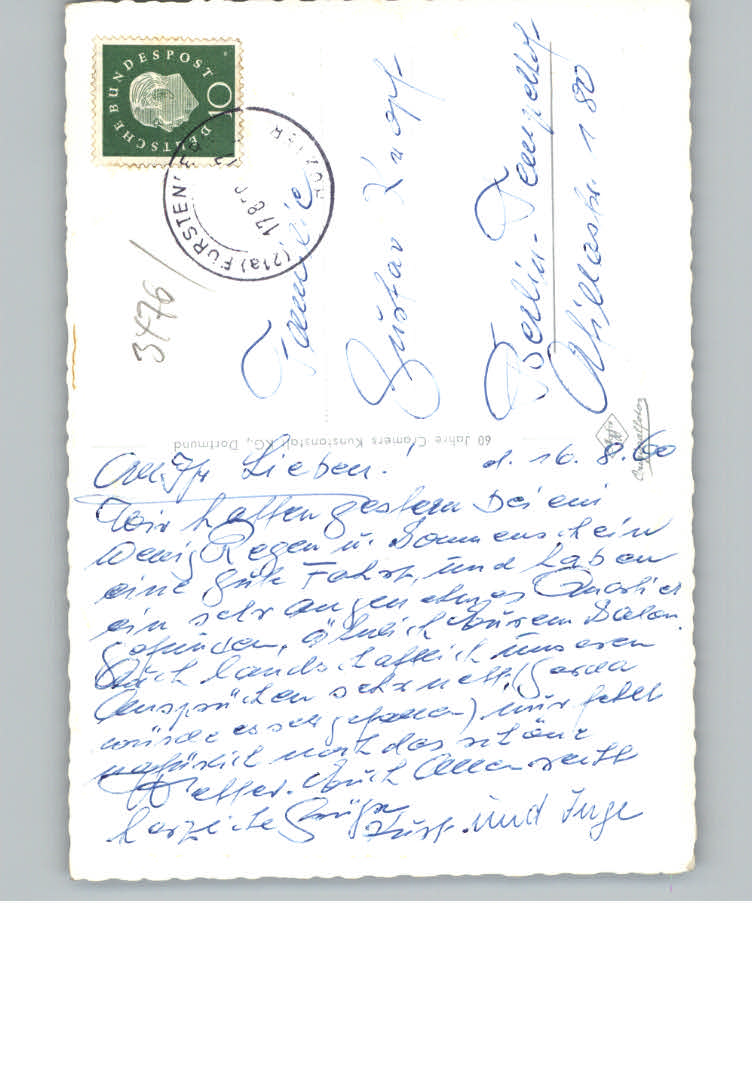 DEUTSCHE BUNDESPOST
10
(21a) FÜRSTEN
17.8.60
3476
Familie
Gustav Knopf
Berlin-Tempelhof
Attilastr. 180
60 Jahre Cramers Kunstanstalt KG., Dortmund
Agfa
Ihr Lieben! d. 16.8.60
Wir hatten gestern bei ein
wenig Regen u. Sonnenschein
eine gute Fahrt, und haben
ein sehr angenehmes Quartier
gefunden, ähnlich Eurem Salon.
Auch landschaftlich unseren
Ansprüchen sehr nett (Gerda
würde es sehr gefallen) nur fehlt
natürlich noch das schöne
Wetter. Euch Allen recht
herzliche Grüße
Kurt und Inge